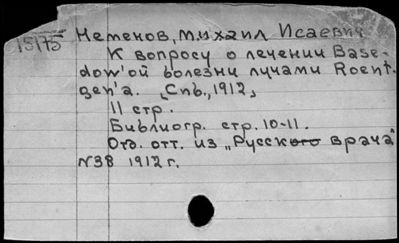 15175
Неменов, Михаил Исаевич
К вопросу о лечении Base-
dow'ой болезни лучами Roent-
gen'a. [Спб., 1912]
11 стр.
Библиогр. стр. 10-11.
Отд. отт. из „Русского врача"
N38 1912 г.